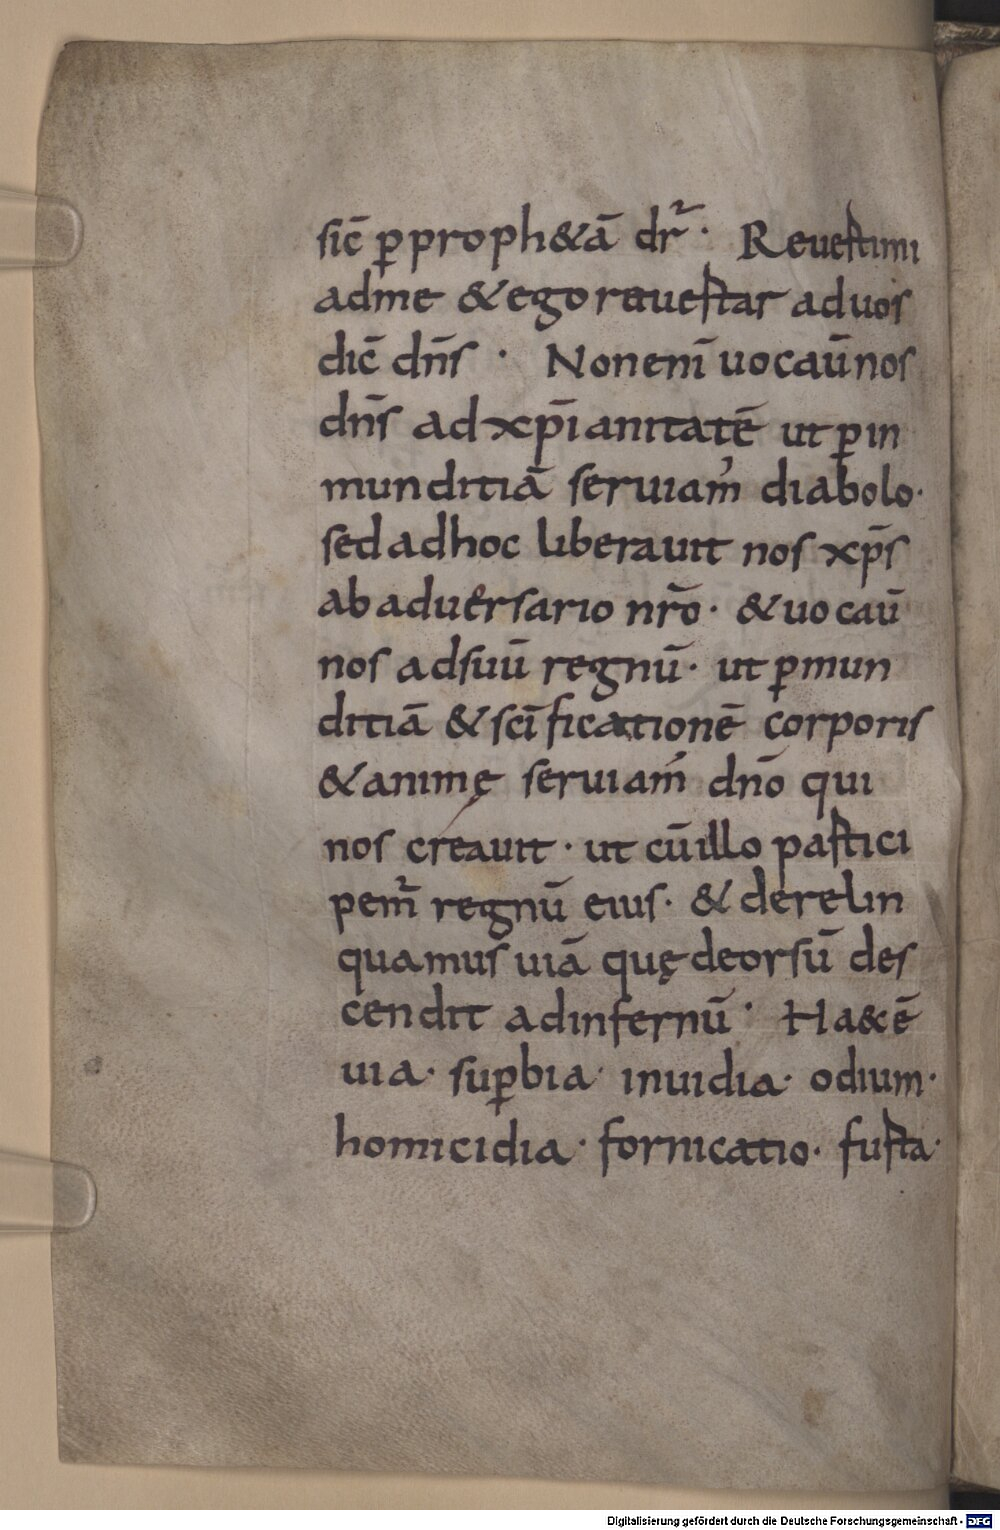 sic̄ ꝑ proph&ā dr̄· Reuertimi
adme &ego reuertar ad uos
dic̄ dn̄s · Non enī uocaū nos
dn̄s ad xp̄ianitatē ut ꝑ in
munditiā seruiam᷒ diabolo·
sed adhoc liberauit nos xp̄s
ab aduersario nr̄o· & uocaū
nos adsuū regnū· ut ꝑ mun
ditiā & sc̄ificationē corporis
& animę seruiam᷒ dn̄o qui
nos creauit· ut cū illo partici
pem̄ regnū eius· & derelin
quamus uiā quę deorsū des
cendit ad infernū· Ha&ē
uia· suꝑbia· inuidia· odium·
homicidia· fornicatio· furta·
Digitalisierung gefördert durch die Deutsche Forschungsgemeinschaft - DFG